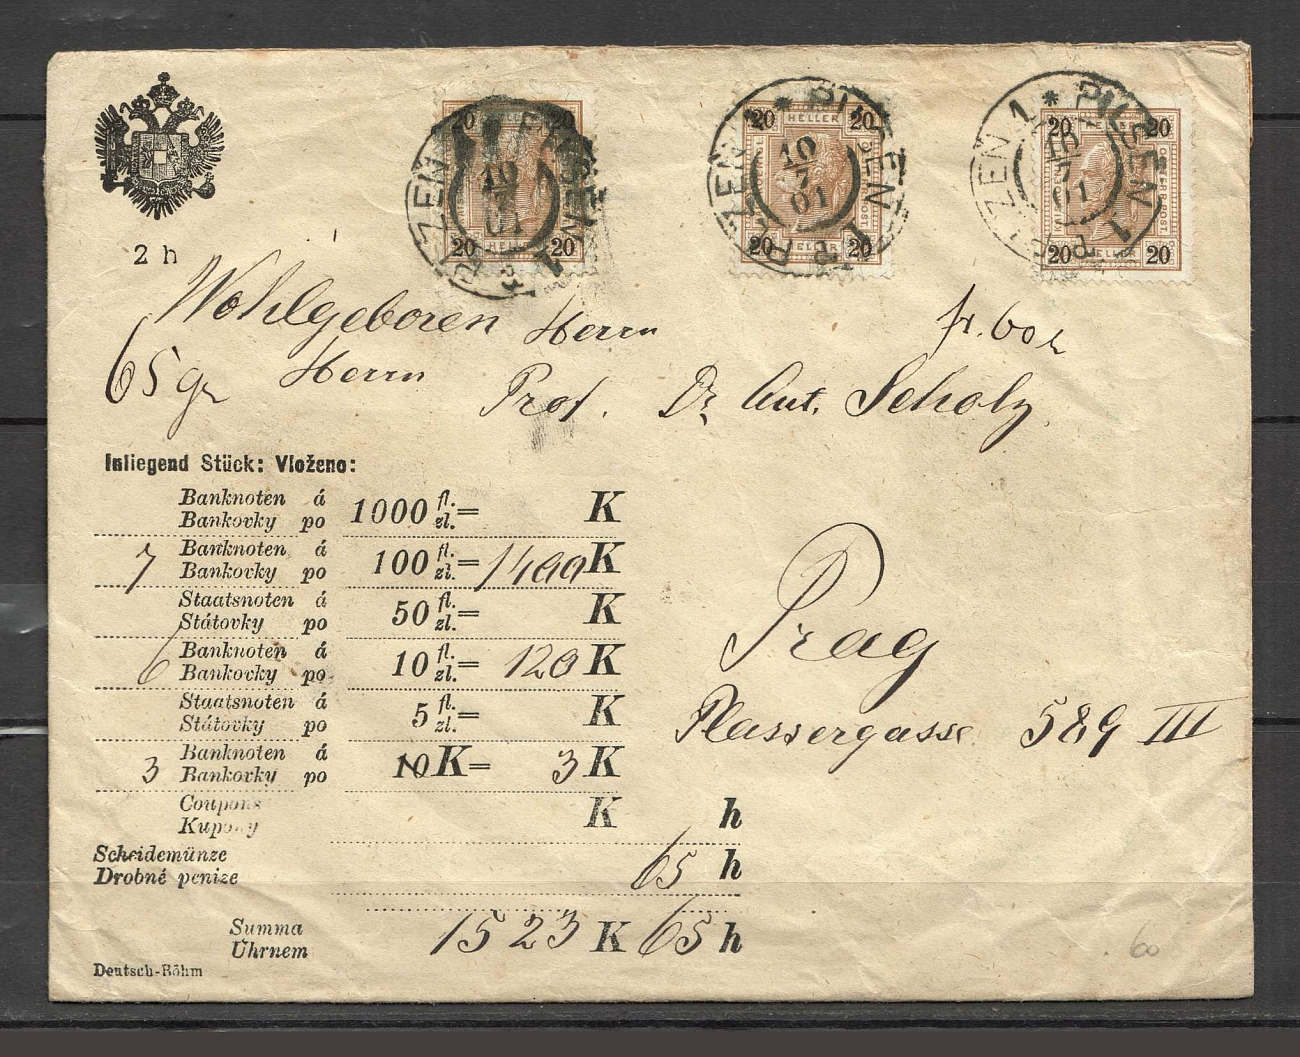 20 20
20 HELLER 20
20 20
PILSEN 1 * PLZEŇ 1
PILSEN 1 * PLZEŇ 1
PILSEN 1 * PLZEŇ 1
10
7
01
10
7
01
10
7
01
20 HELLER 20
20 20
20 HELLER 20
2 h
Wohlgeboren Herrn
fr. 60 h
65 gr Herrn Prof. Dr Ant. Scholz
Inliegend Stück: Vloženo:
Banknoten á
Bankovky po 1000 fl. zl. = K
7 Banknoten á
Bankovky po 100 fl. zl. = 1400 K
Staatsnoten á
Státovky po 50 fl. zl. = K
6 Banknoten á
Bankovky po 10 fl. zl. = 120 K
Staatsnoten á
Státovky po 5 fl. zl. = K
3 Banknoten á
Bankovky po 10 K = 3 K
Coupons
Kupony K h
Scheidemünze
Drobné peníze 65 h
Summa
Úhrnem 1523 K 65 h
Deutsch-Böhm
Prag
Plassergasse 589 III
60